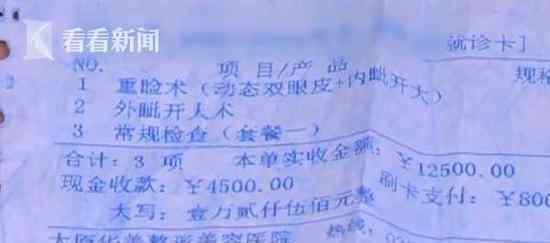 看看新闻
就诊卡]
NO. 项目/产品 规
1 重睑术（动态双眼皮+内眦开大）
2 外眦开大术
3 常规检查（套餐一）
合计：3 项 本单实收金额：￥12500.00
现金收款：￥4500.00 刷卡支付：￥800
大写：壹万贰仟伍佰元整
太原华美整形美容医院 热线：